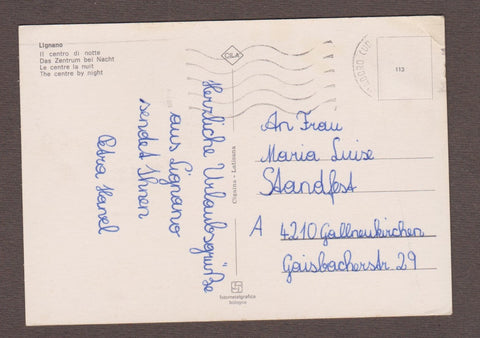 Lignano
Il centro di notte
Das Zentrum bei Nacht
Le centre la nuit
The centre by night
CILA
113
Herzliche Urlaubsgrüße
aus Lignano
sendet Ihnen
Petra Hanel
Cignina - Latisana
An Frau
Maria Luise
Standfest
A 4210 Gallneukirchen
Gaisbacherstr. 29
fotometalgrafica
bologna